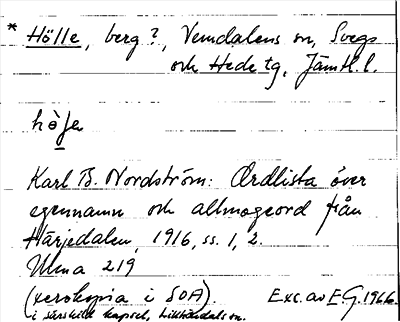 * Hölle, berg?, Vemdalens sn, Svegs
och Hede tg, Jämtl. l.
Karl B. Nordström: Ordlista över
egennamn och allmogeord från
Härjedalen, 1916, ss. 1, 2.
Ulma 219
(xerokopia i SOA). Exc. av E G. 1966.
i särskild kapsel,